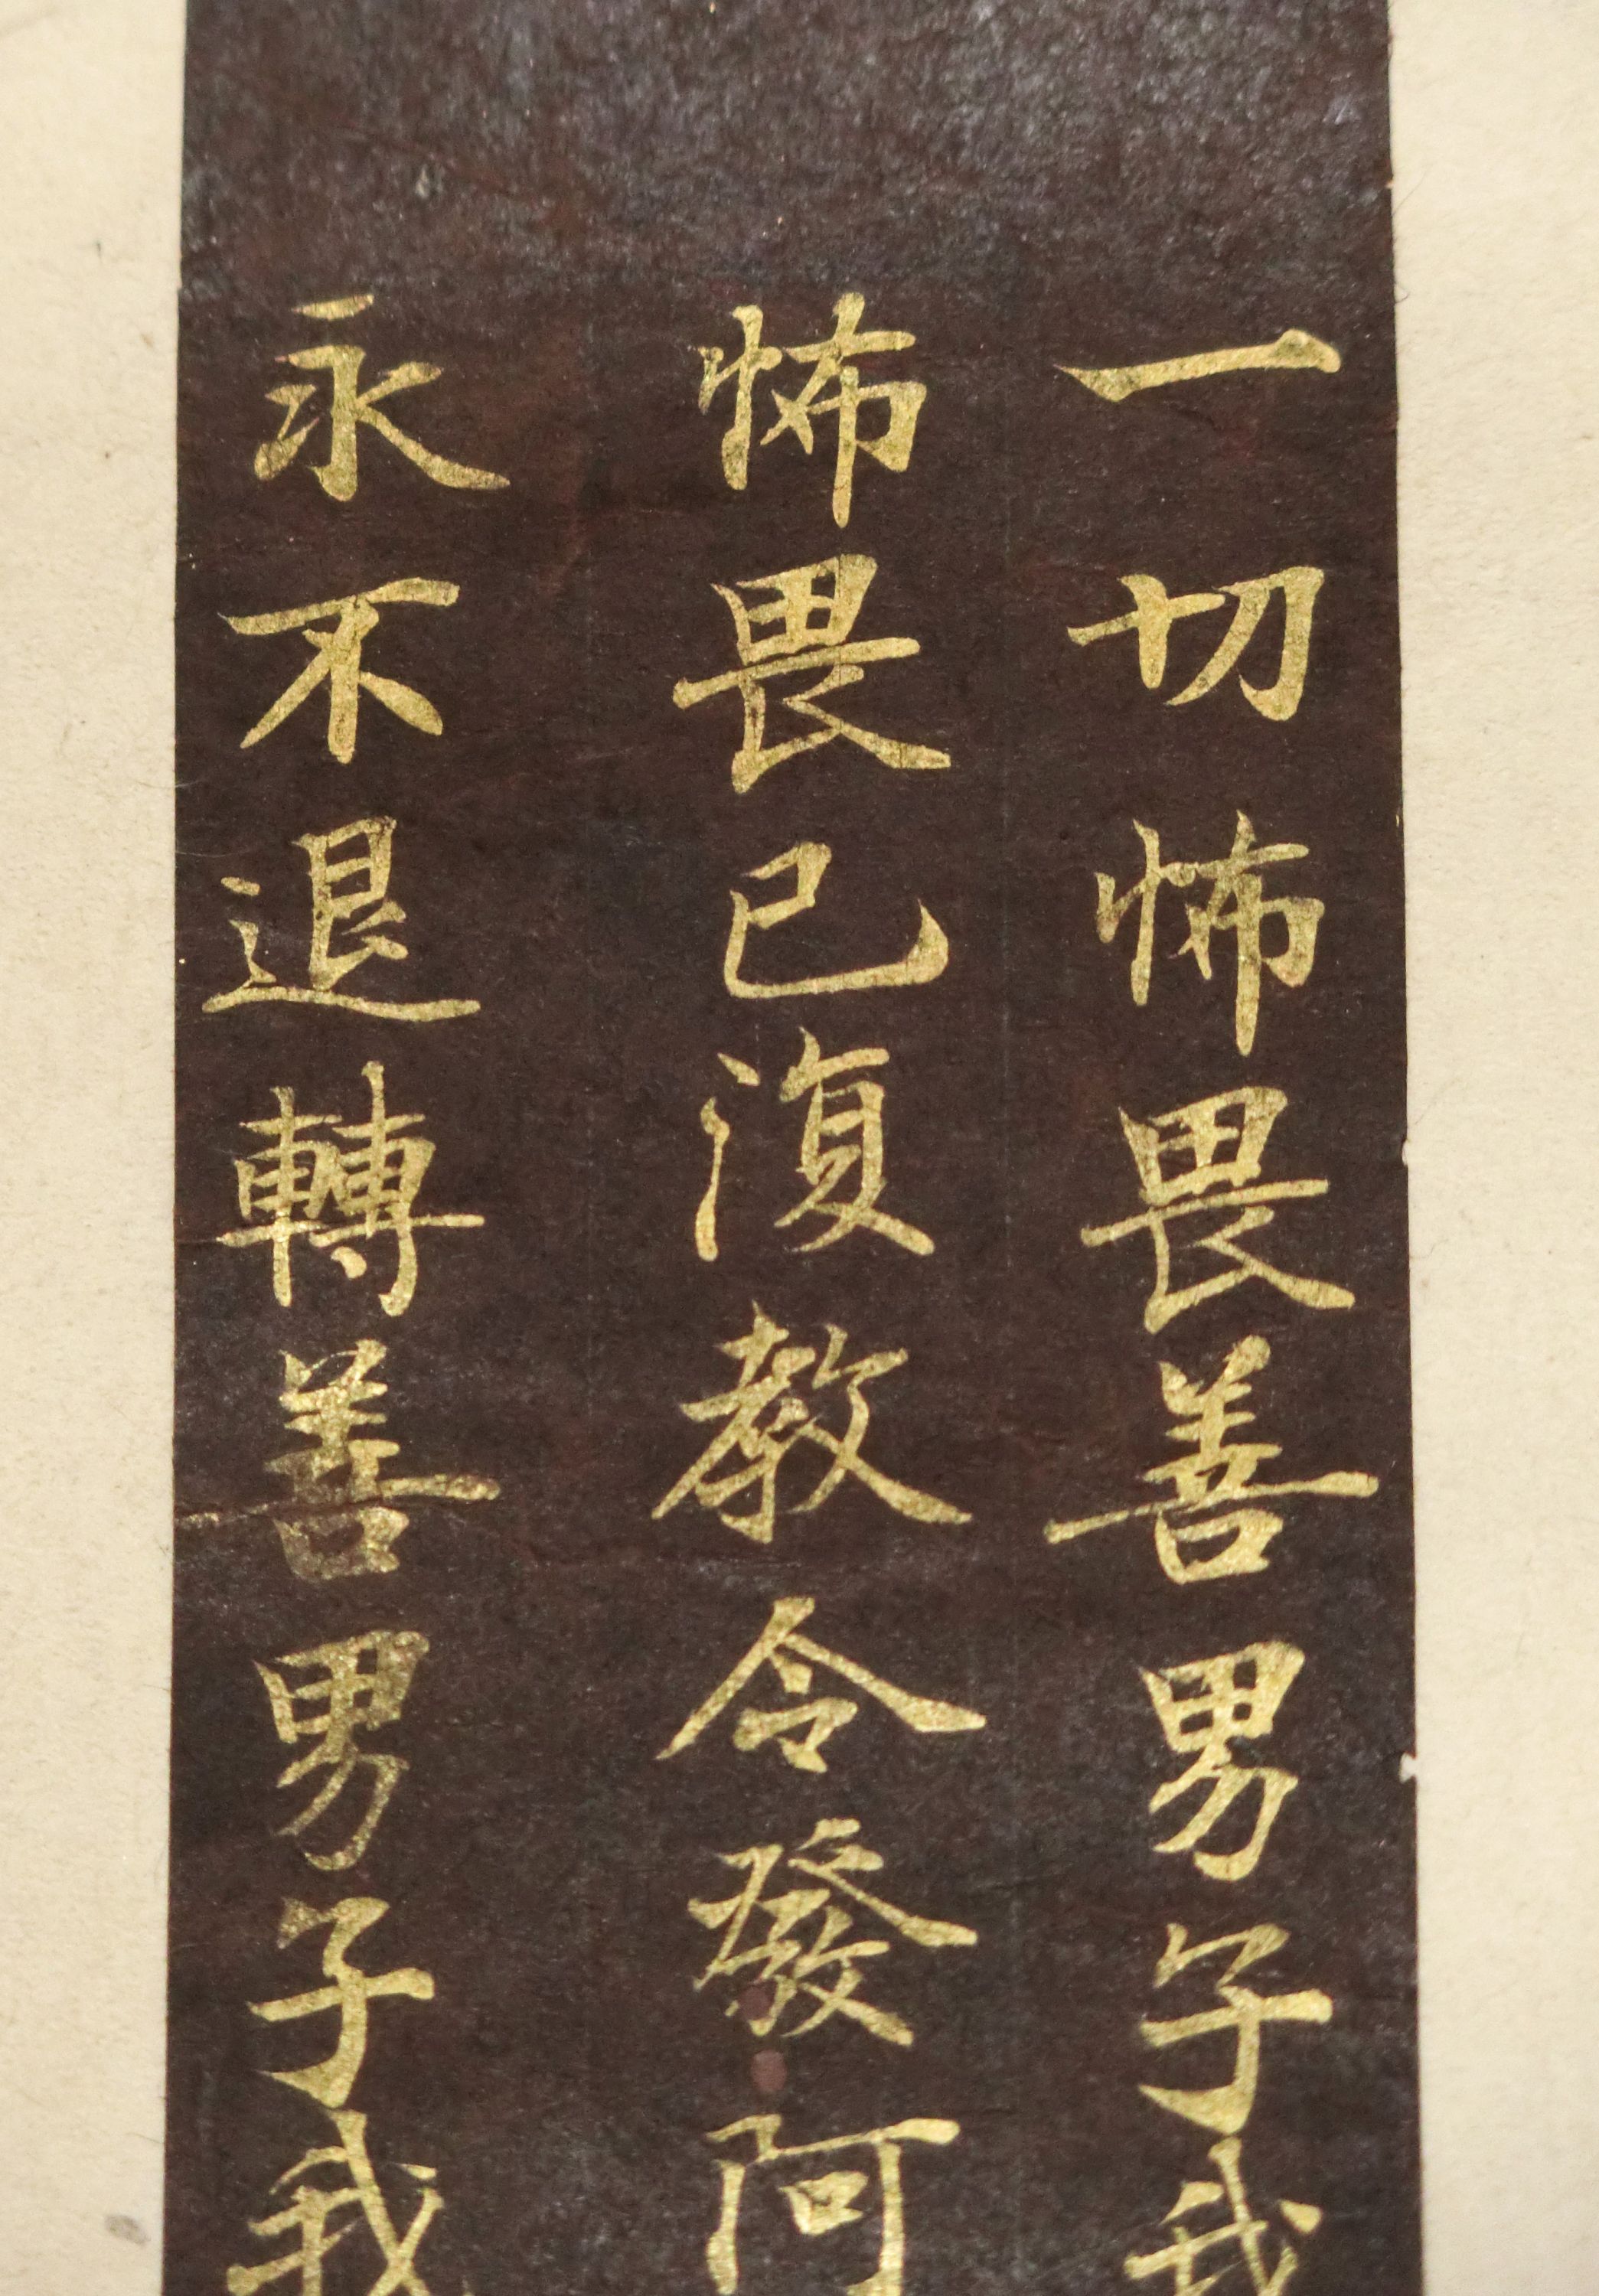 一切怖畏善男子我
怖畏已復教令發阿
永不退轉善男子我